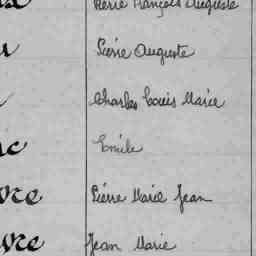 Pierre François Auguste
Pierre Auguste
Charles Louis Marie
Emile
Pierre Marie Jean
Jean Marie